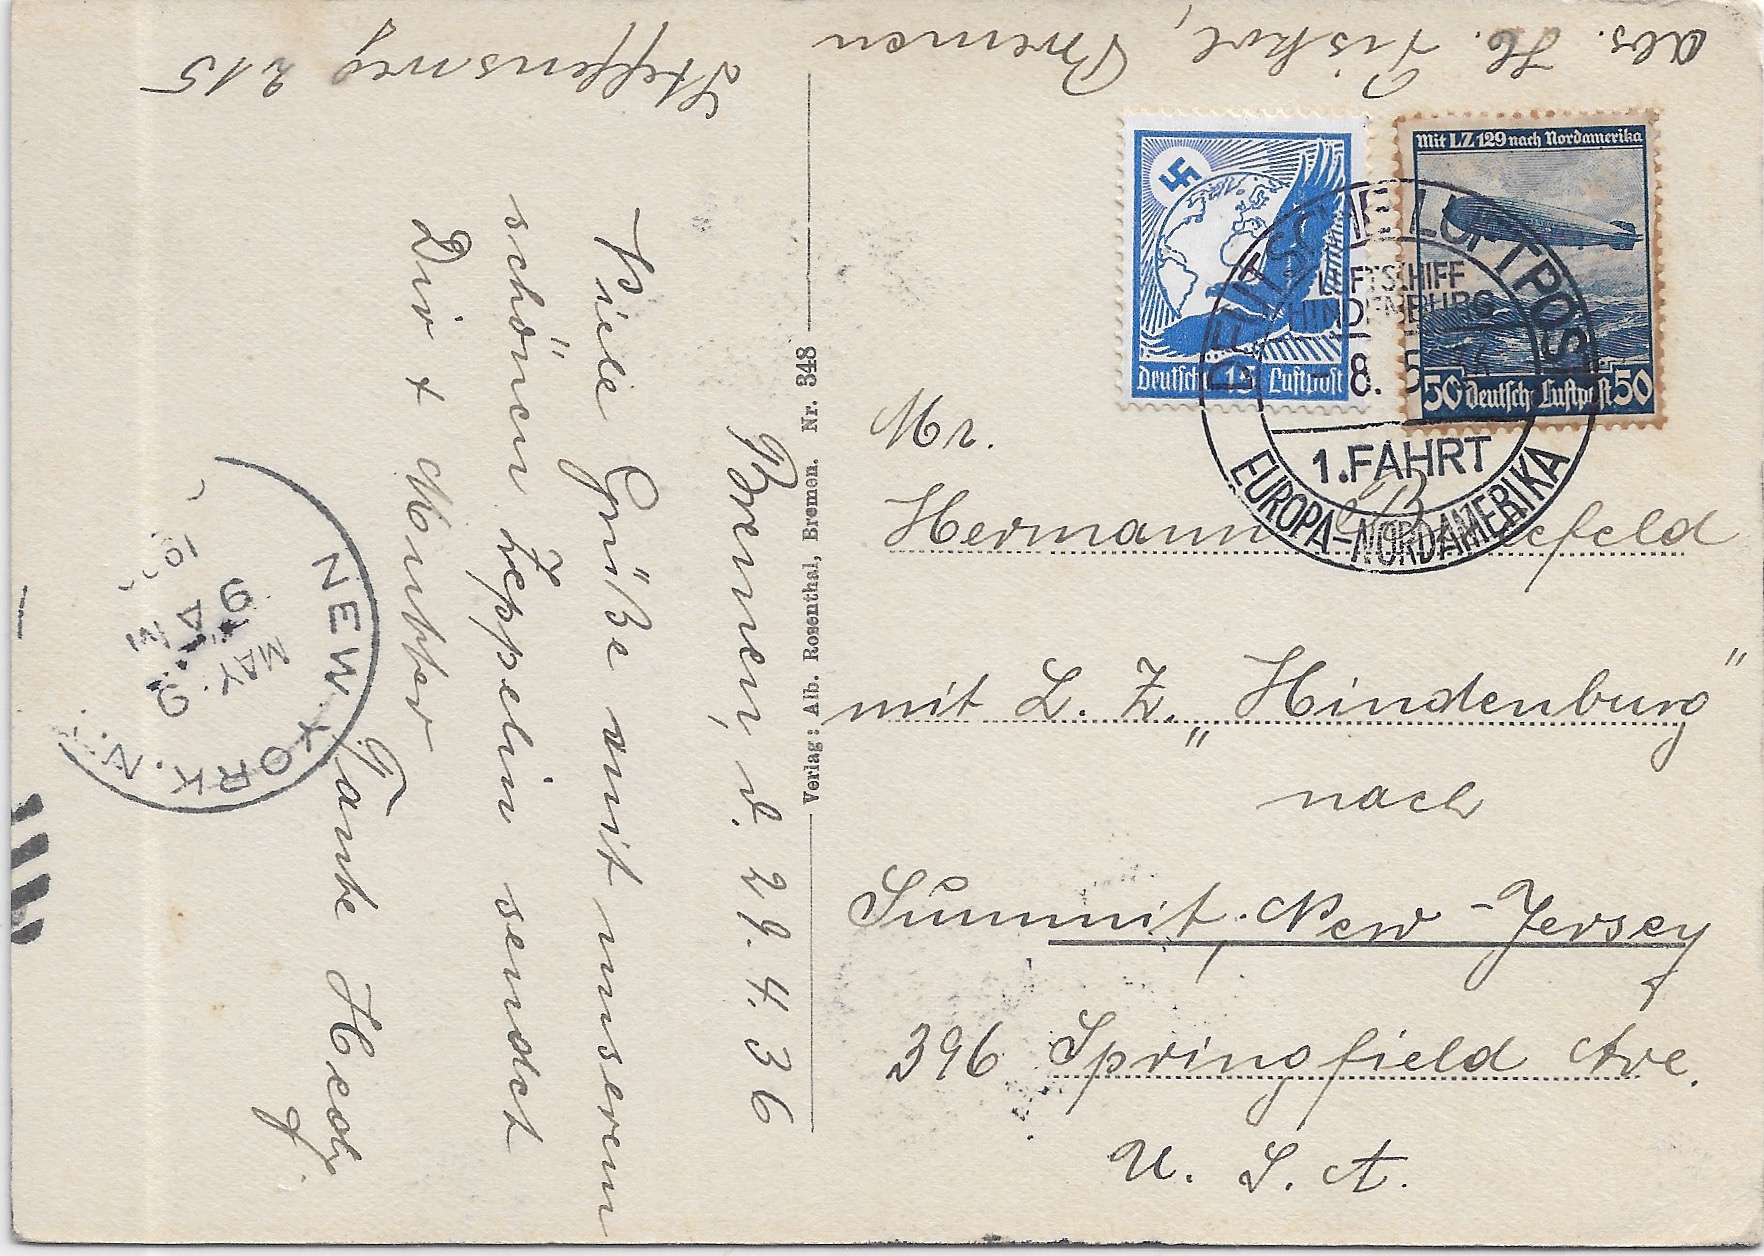 Abs. H. Piskol, Bremen
Steffensweg 215
Mit LZ 129 nach Nordamerika
50 Deutsche Luftpost 50
Deutsche 15 Luftpost
DEUTSCHE LUFTPOST
LUFTSCHIFF
HINDENBURG
- 8. 5. 36
1.FAHRT
EUROPA-NORDAMERIKA
Mr.
Hermann
mit L. Z. „Hindenburg”
nach
Summit, New-Jersey
396 Springfield Ave.
U. S. A.
Verlag: Alb. Rosenthal, Bremen. Nr. 348
Bremen, d. 29. 4. 36
Viele Grüße mit unserem
schönen Zeppelin sendet
Dir + Mutter
Tante
NEW YORK, N.
MAY 9
9 AM